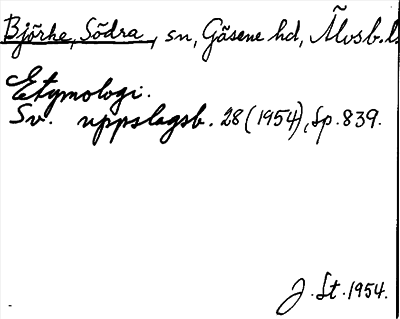 Björke, Södra, sn, Gäsene hd, Älvsb.l.
Etymologi.
Sv. uppslagsb. 28 (1954), sp. 839.
J. St. 1954.